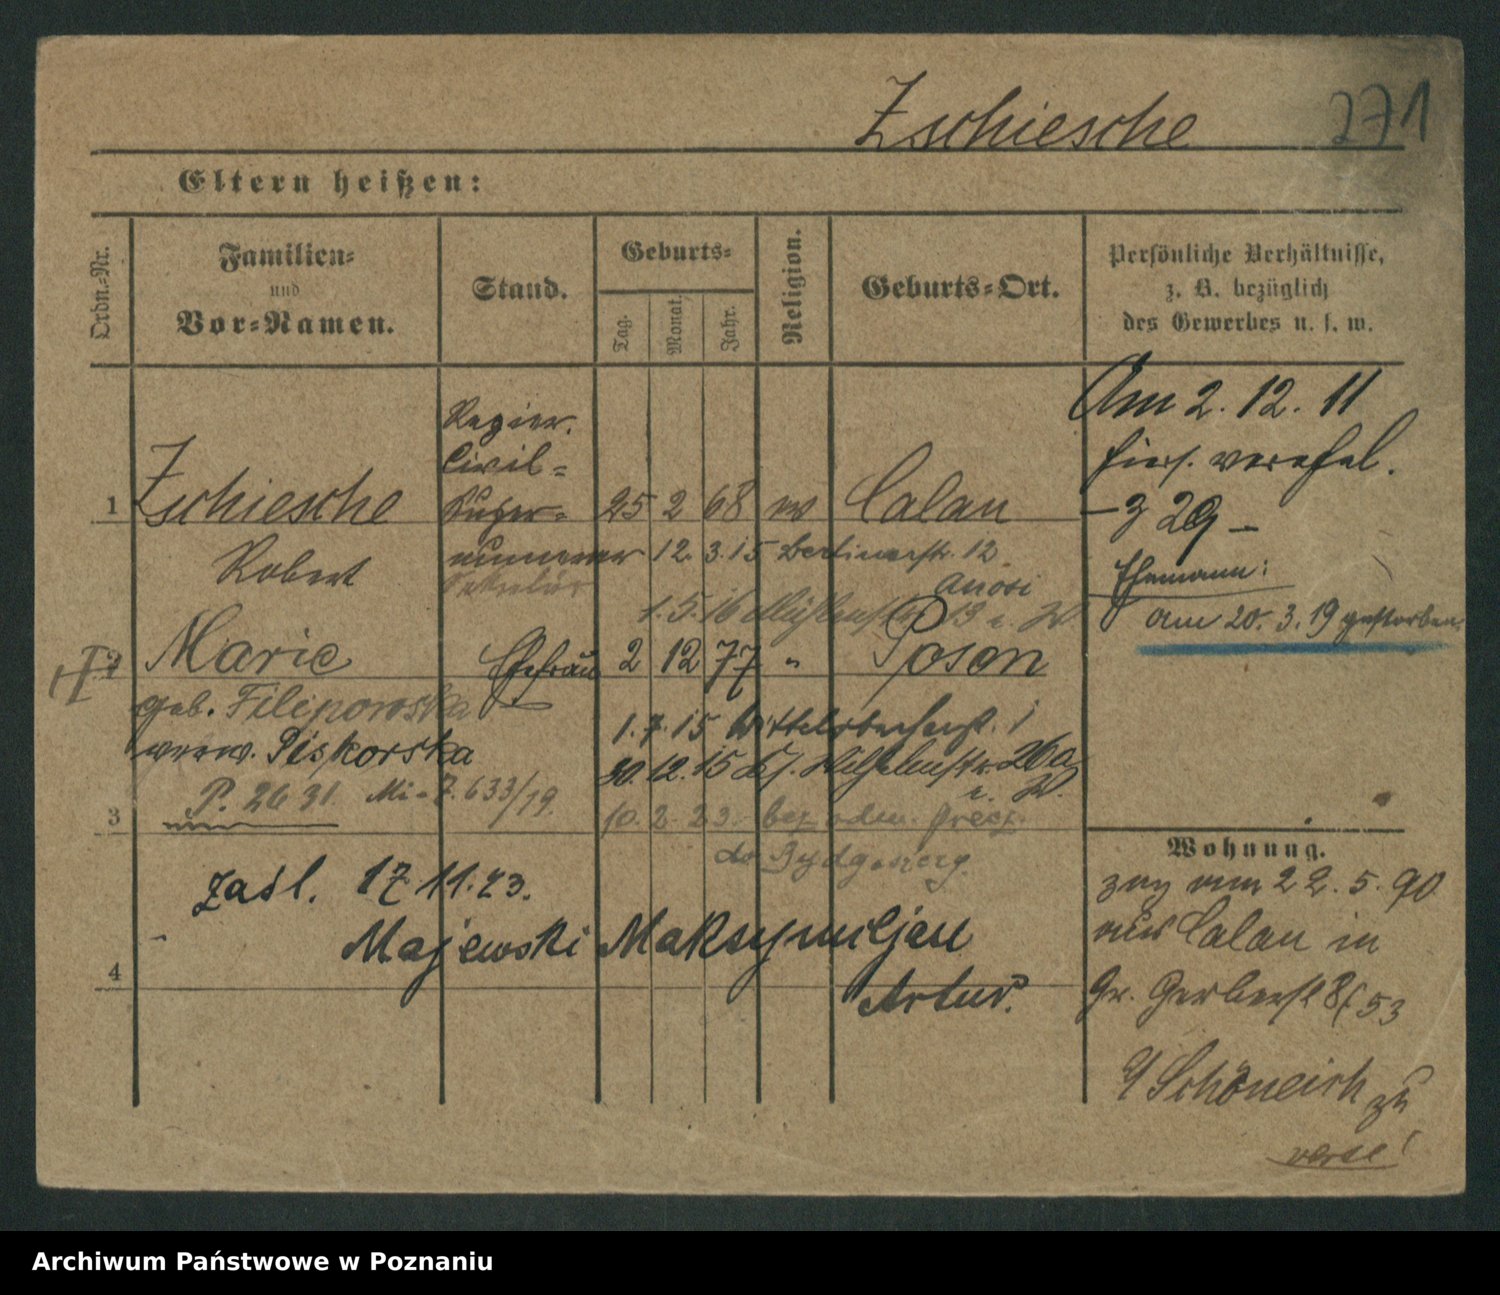 Zschiesche 271
Eltern heißen:
Ordn.-Nr.
Familien-
und
Vor-Namen.
Stand.
Geburts-
Tag. Monat. Jahr.
Religion.
Geburts-Ort.
Persönliche Verhältnisse,
z. B. bezüglich
des Gewerbes u. s. w.
Regier.
Civil-
Super-
numerar
Sekretär
1 Zschiesche 25 2 68 ev Calau
Robert
12. 3. 15 Berlinerstr. 12
1. 5. 16 Mühlenstr. 13
2 Marie Ehefrau 2 12 77 " Posen
geb. Filipowska
verw. Piskorska
P. 2631. 7. 633/19.
1. 7. 15 1
30. 12. 15 26a
3 10. 2. 23.
do Bydgoszczy.
zasl. 17.11.23.
Majewski Maksymiljan
4 Artur.
Am 2. 12. 11
hier. verehel.
29 –
Ehemann:
am 20. 3. 19 gestorben.
Wohnung.
zog am 22. 5. 90
aus Calau in
Gr. Gerberst 8/53
Schöneich zu